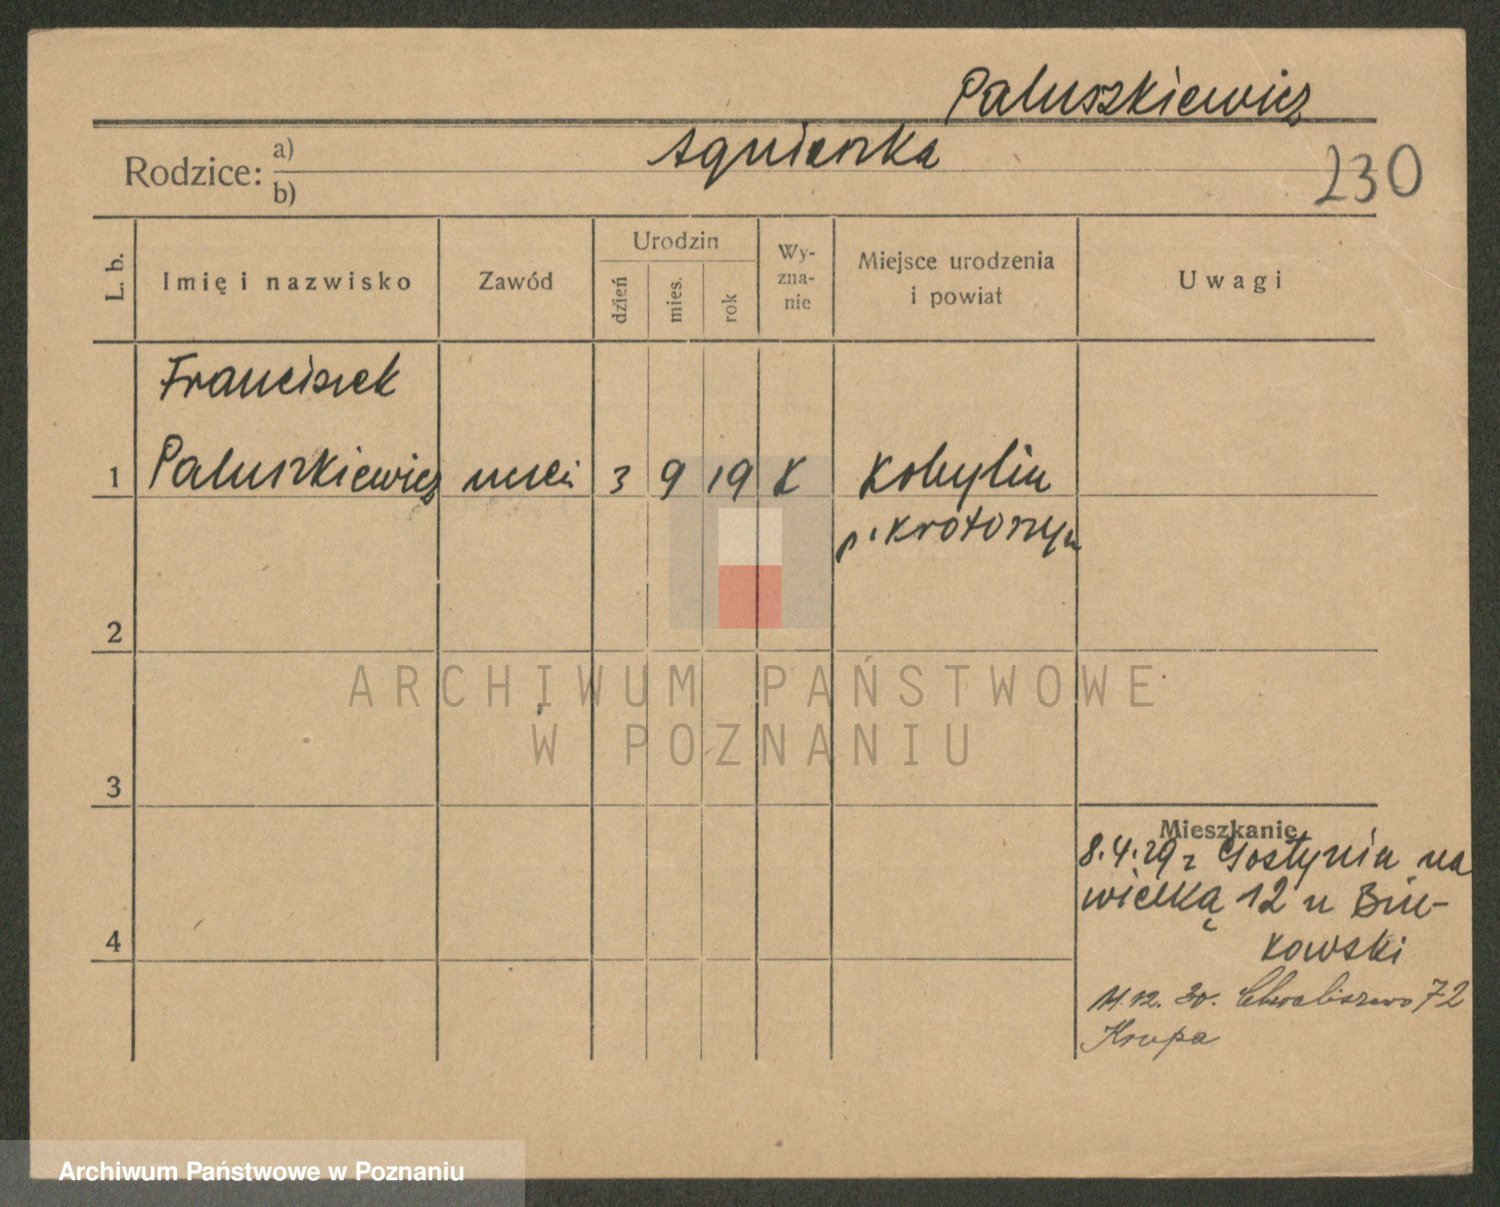 Paluszkiewicz
Rodzice: a) Agnieszka
b)
230
L. b.
Imię i nazwisko
Zawód
Urodzin
dzień
mies.
rok
Wy-
zna-
nie
Miejsce urodzenia
i powiat
Uwagi
Franciszek
1 Paluszkiewicz uczeń 3 9 19 K Kobylin
p. Krotoszyn
2
3
4
Mieszkanie
8.4.29 z Gostynia na
wielką 12 u
kowski
11.12.30. Chwaliszewo 72
Krupa
ARCHIWUM PAŃSTWOWE
W POZNANIU
Archiwum Państwowe w Poznaniu